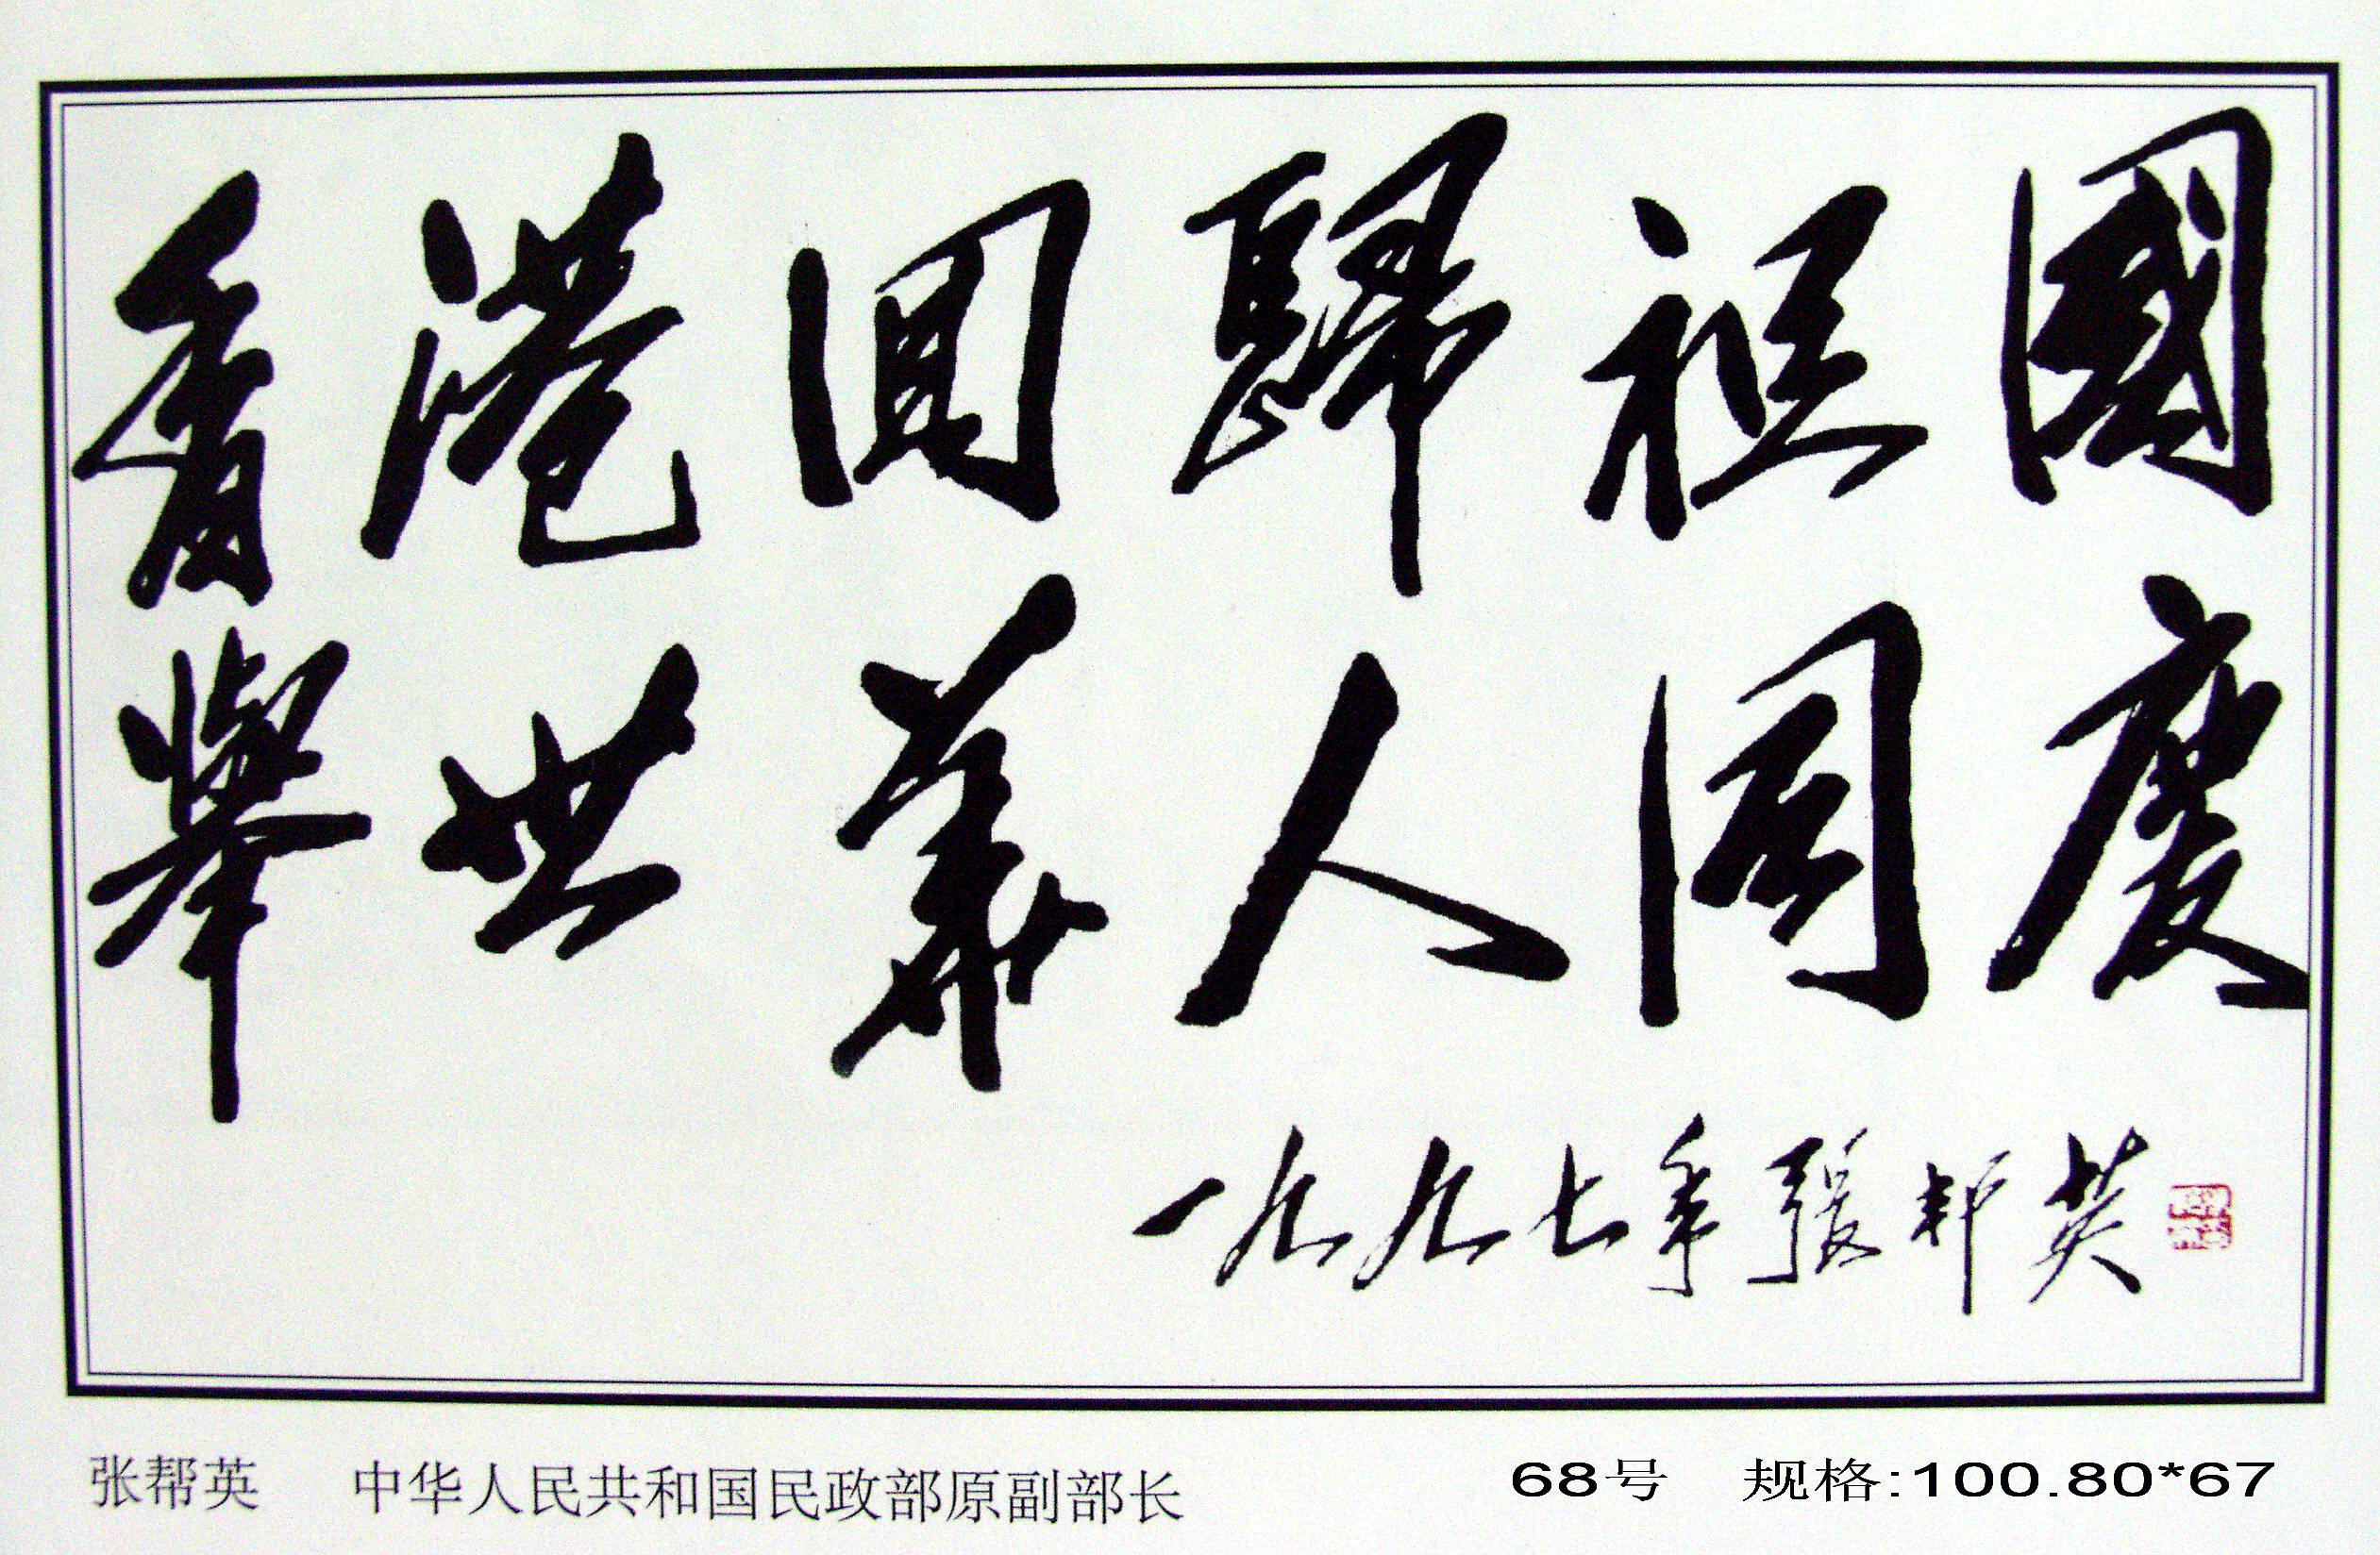 香港回歸祖國
舉世華人同慶
一九九七年張邦英
张帮英 中华人民共和国民政部原副部长 68号 规格:100.80*67